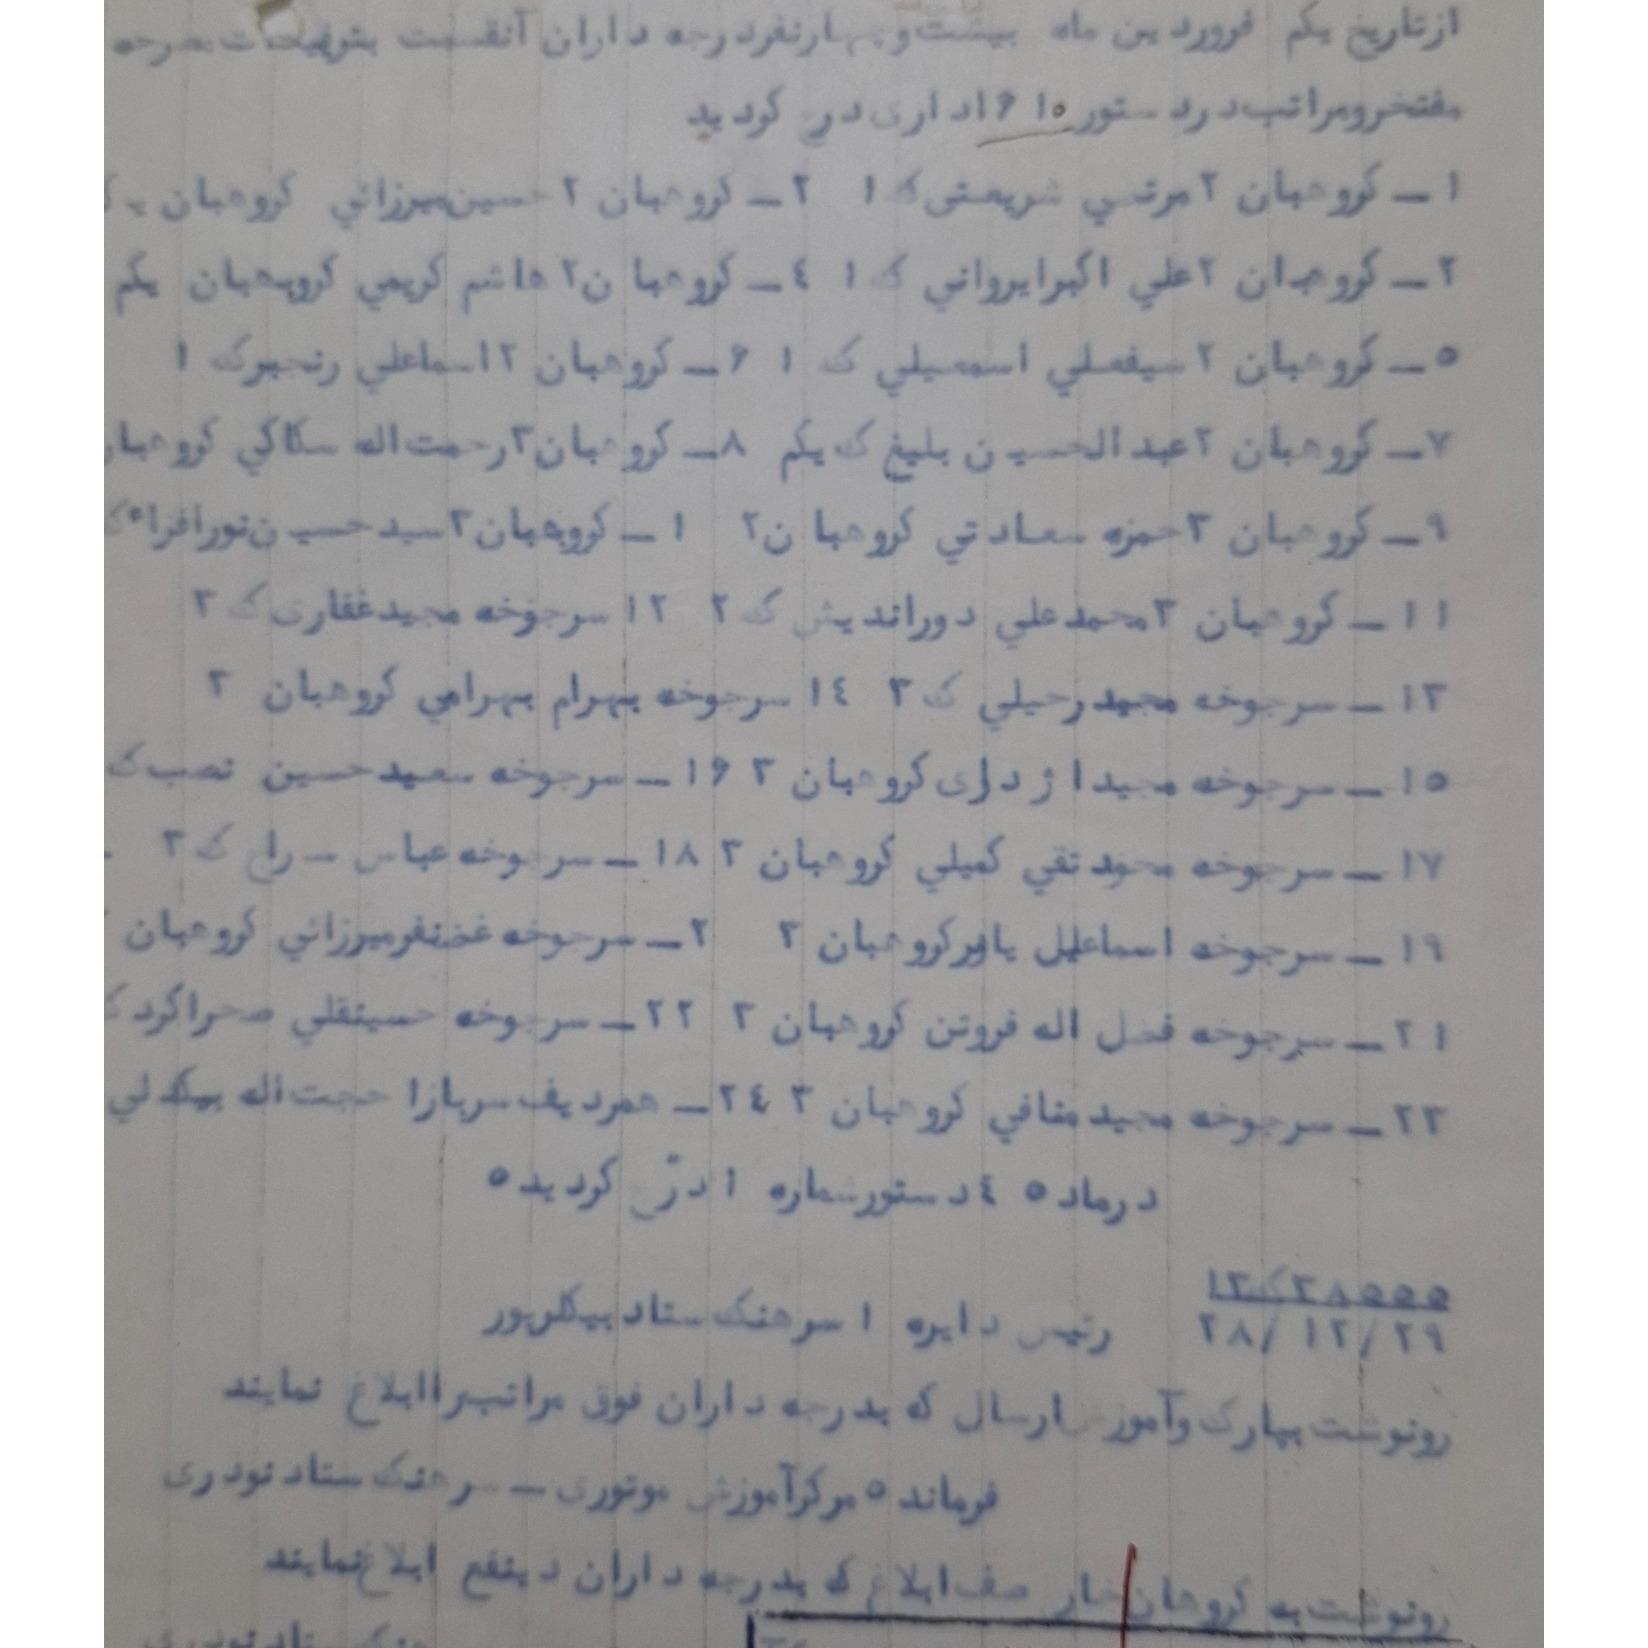 از تاریخ یکم فروردین ماه بیست و چهار نفر درجه داران آنقسمت بترفیعات مرحه
مفتخر و مراتب در دستور ۱۰ ۶ اداری درج گردید
۱ ـ گروهبان ۲ مرتضي شریعتی ک ۱ ۲ ـ گروهبان ۲ حسین میرزائي گروهبان یک
۳ ـ گروهبان ۲ علي اکبر ایرواني ک ۱ ٤ ـ گروهبان ۲ هاشم کریمي گروهبان یکم
۵ ـ گروهبان ۲ سیفعلي اسمعیلي ک ۱ ۶ ـ گروهبان ۲ اسماعلي رنجبر ک ۱
۷ ـ گروهبان ۲ عبدالحسین بلیغ ک یکم ۸ ـ گروهبان ۳ رحمت اله سکاکي گروهبا
۹ ـ گروهبان ۳ حمزه سعادتي گروهبان ۲ ۱ ـ گروهبان ۳ سید حسین نورافراه ک
۱۱ ـ گروهبان ۳ محمدعلي دوراندیش ک ۲ ۱۲ سرجوخه مجید غفاری ک ۳
۱۳ ـ سرجوخه محمد رحیلي ک ۳ ۱٤ سرجوخه بهرام بهرامي گروهبان ۳
۱۵ ـ سرجوخه مجید اژدری گروهبان ۳ ۱۶ ـ سرجوخه سعید حسین نصب ک
۱۷ ـ سرجوخه محمد تقي کمیلي گروهبان ۳ ۱۸ ـ سرجوخه عباس سراج ک ۳
۱۹ ـ سرجوخه اسماعیل یاور گروهبان ۳ ۲ ـ سرجوخه غضنفر میرزائي گروهبان
۲۱ ـ سرجوخه فضل اله فروتن گروهبان ۳ ۲۲ ـ سرجوخه حسینقلي صحراگرد ک
۲۳ ـ سرجوخه مجید منافي گروهبان ۳ ۲٤ ـ همردیف سرباز ۱ حجت اله بیکدلي
درماده ٤ دستور شماره ۱ درج گردیده
۱۳ ک ۳۸۵۵۵
۲۸/ ۱۲/ ۲۹ رئیس دایره ۱ سرهنک ستاد بیکلرپور
رونوشت بهارک و آموزش ارسال که بدرجه داران فوق مراتبرا ابلاغ نمایند
فرمانده مرکز آموزش موتوری ـ سرهنک ستاد نودری
رونوشت به گروهان خار صف ابلاغ که بدرجه داران ذینفع ابلاغ نمایند